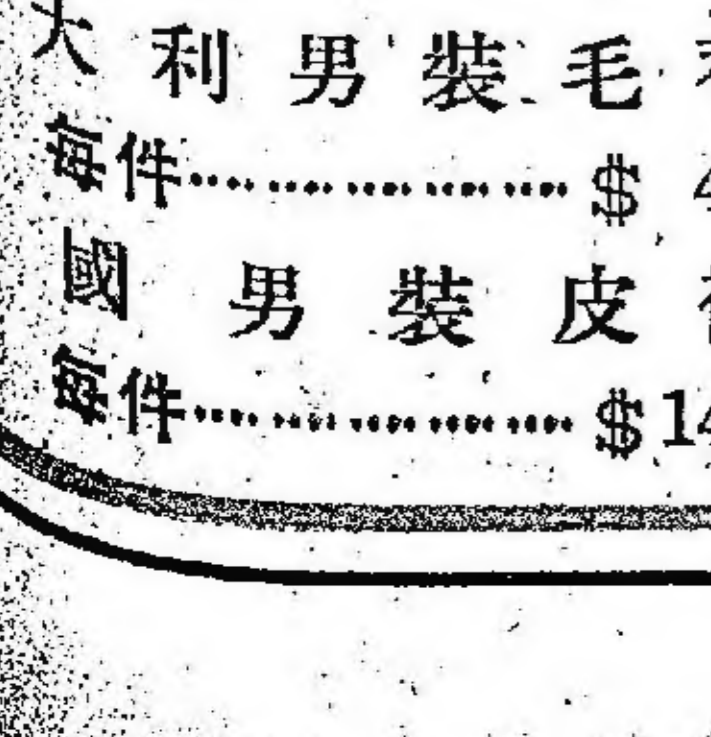 大利男裝毛
每件…………… $ 4
國男裝皮
每件…………… $14